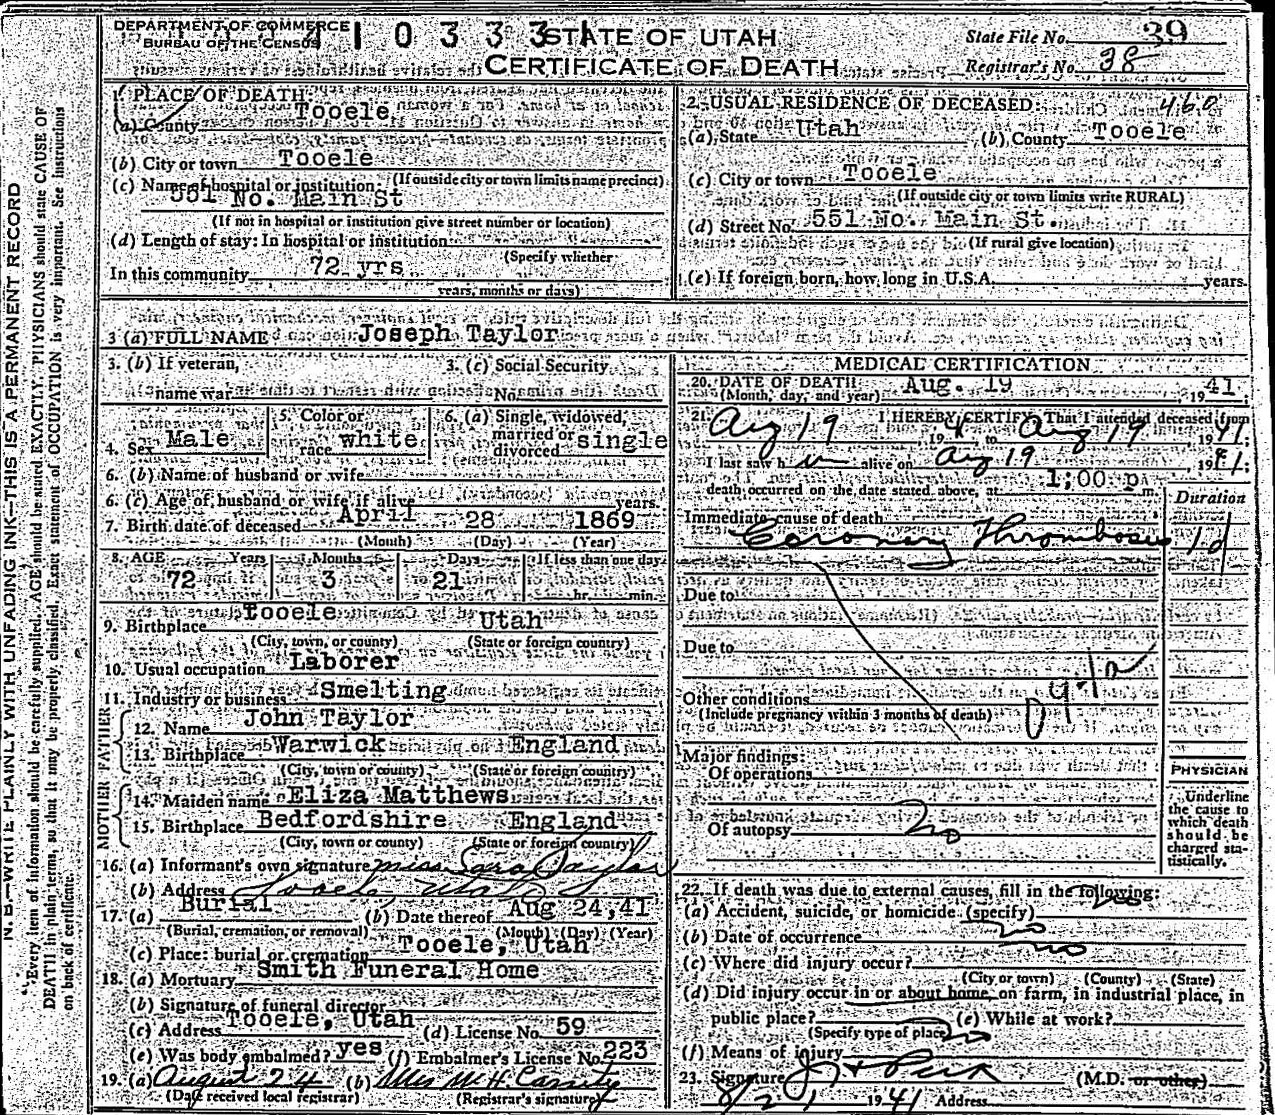 DEPARTMENT OF COMMERCE
BUREAU OF THE CENSUS
1 0 3 3 3
STATE OF UTAH
CERTIFICATE OF DEATH
State File No. 39
Registrar's No. 38
N. B.—WRITE PLAINLY WITH UNFADING INK—THIS IS A PERMANENT RECORD
Every item of information should be carefully supplied. AGE should be stated EXACTLY. PHYSICIANS should state CAUSE OF
DEATH in plain terms, so that it may be properly classified. Exact statement of OCCUPATION is very important. See instructions
on back of certificate.
1. PLACE OF DEATH
(a) County Tooele
(b) City or town Tooele
(If outside city or town limits name precinct)
(c) Name of hospital or institution:
551 No. Main St
(If not in hospital or institution give street number or location)
(d) Length of stay: In hospital or institution
(Specify whether
In this community 72 yrs
years, months or days)
2. USUAL RESIDENCE OF DECEASED: 460
(a) State Utah (b) County Tooele
(c) City or town Tooele
(If outside city or town limits write RURAL)
(d) Street No. 551 No. Main St.
(If rural give location)
(e) If foreign born, how long in U.S.A. years.
3 (a) FULL NAME Joseph Taylor
3. (b) If veteran,
name war
3. (c) Social Security
No.
4. Sex Male
5. Color or
race white
6. (a) Single, widowed,
married or
divorced single
6. (b) Name of husband or wife
6. (c) Age of husband or wife if alive years.
7. Birth date of deceased April 28 1869
(Month) (Day) (Year)
8. AGE Years Months Days If less than one day
72 3 21 hr. min.
9. Birthplace Tooele Utah
(City, town, or county) (State or foreign country)
10. Usual occupation Laborer
11. Industry or business Smelting
FATHER
12. Name John Taylor
13. Birthplace Warwick England
(City, town or county) (State or foreign country)
MOTHER
14. Maiden name Eliza Matthews
15. Birthplace Bedfordshire England
(City, town or county) (State or foreign country)
16. (a) Informant's own signature miss Sara Taylor
(b) Address Tooele Utah
17. (a) Burial (b) Date thereof Aug 24,41
(Burial, cremation, or removal) (Month) (Day) (Year)
(c) Place: burial or cremation Tooele, Utah
18. (a) Mortuary Smith Funeral Home
(b) Signature of funeral director
(c) Address Tooele, Utah (d) License No. 59
(e) Was body embalmed? yes (f) Embalmer's License No. 223
19. (a) August 24 (b) Mrs M. H. Cassity
(Date received local registrar) (Registrar's signature)
MEDICAL CERTIFICATION
20. DATE OF DEATH Aug. 19 1941.
(Month, day, and year)
21. I HEREBY CERTIFY That I attended deceased from
Aug 19, 194 to Aug 19 1941;
I last saw him alive on Aug 19, 1941;
death occurred on the date stated above, at 1;00 p m.
Duration
Immediate cause of death
Coronary Thrombosis 1d
Due to
Due to
Other conditions
(Include pregnancy within 3 months of death)
Major findings:
Of operations
Of autopsy no
PHYSICIAN
Underline
the cause to
which death
should be
charged sta-
tistically.
22. If death was due to external causes, fill in the following:
(a) Accident, suicide, or homicide (specify)
(b) Date of occurrence no
(c) Where did injury occur? no
(City or town) (County) (State)
(d) Did injury occur in or about home, on farm, in industrial place, in
public place? (e) While at work?
(Specify type of place) no
(f) Means of injury
23. Signature (M.D. or other)
8/21 1941 Address